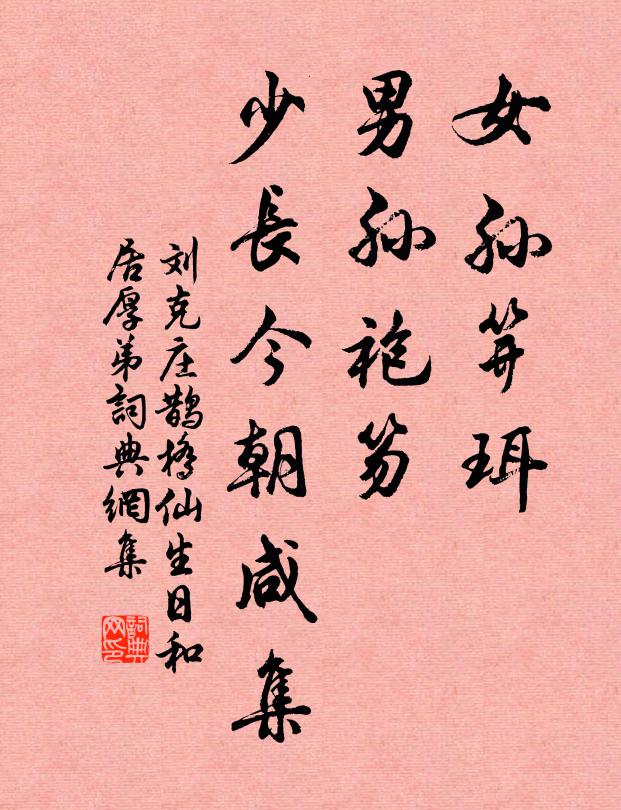 女孙笄珥
男孙袍笏
少長今朝咸集
刘克庄鹊橋仙生日和
居厚弟詞典網集
詞典
网印